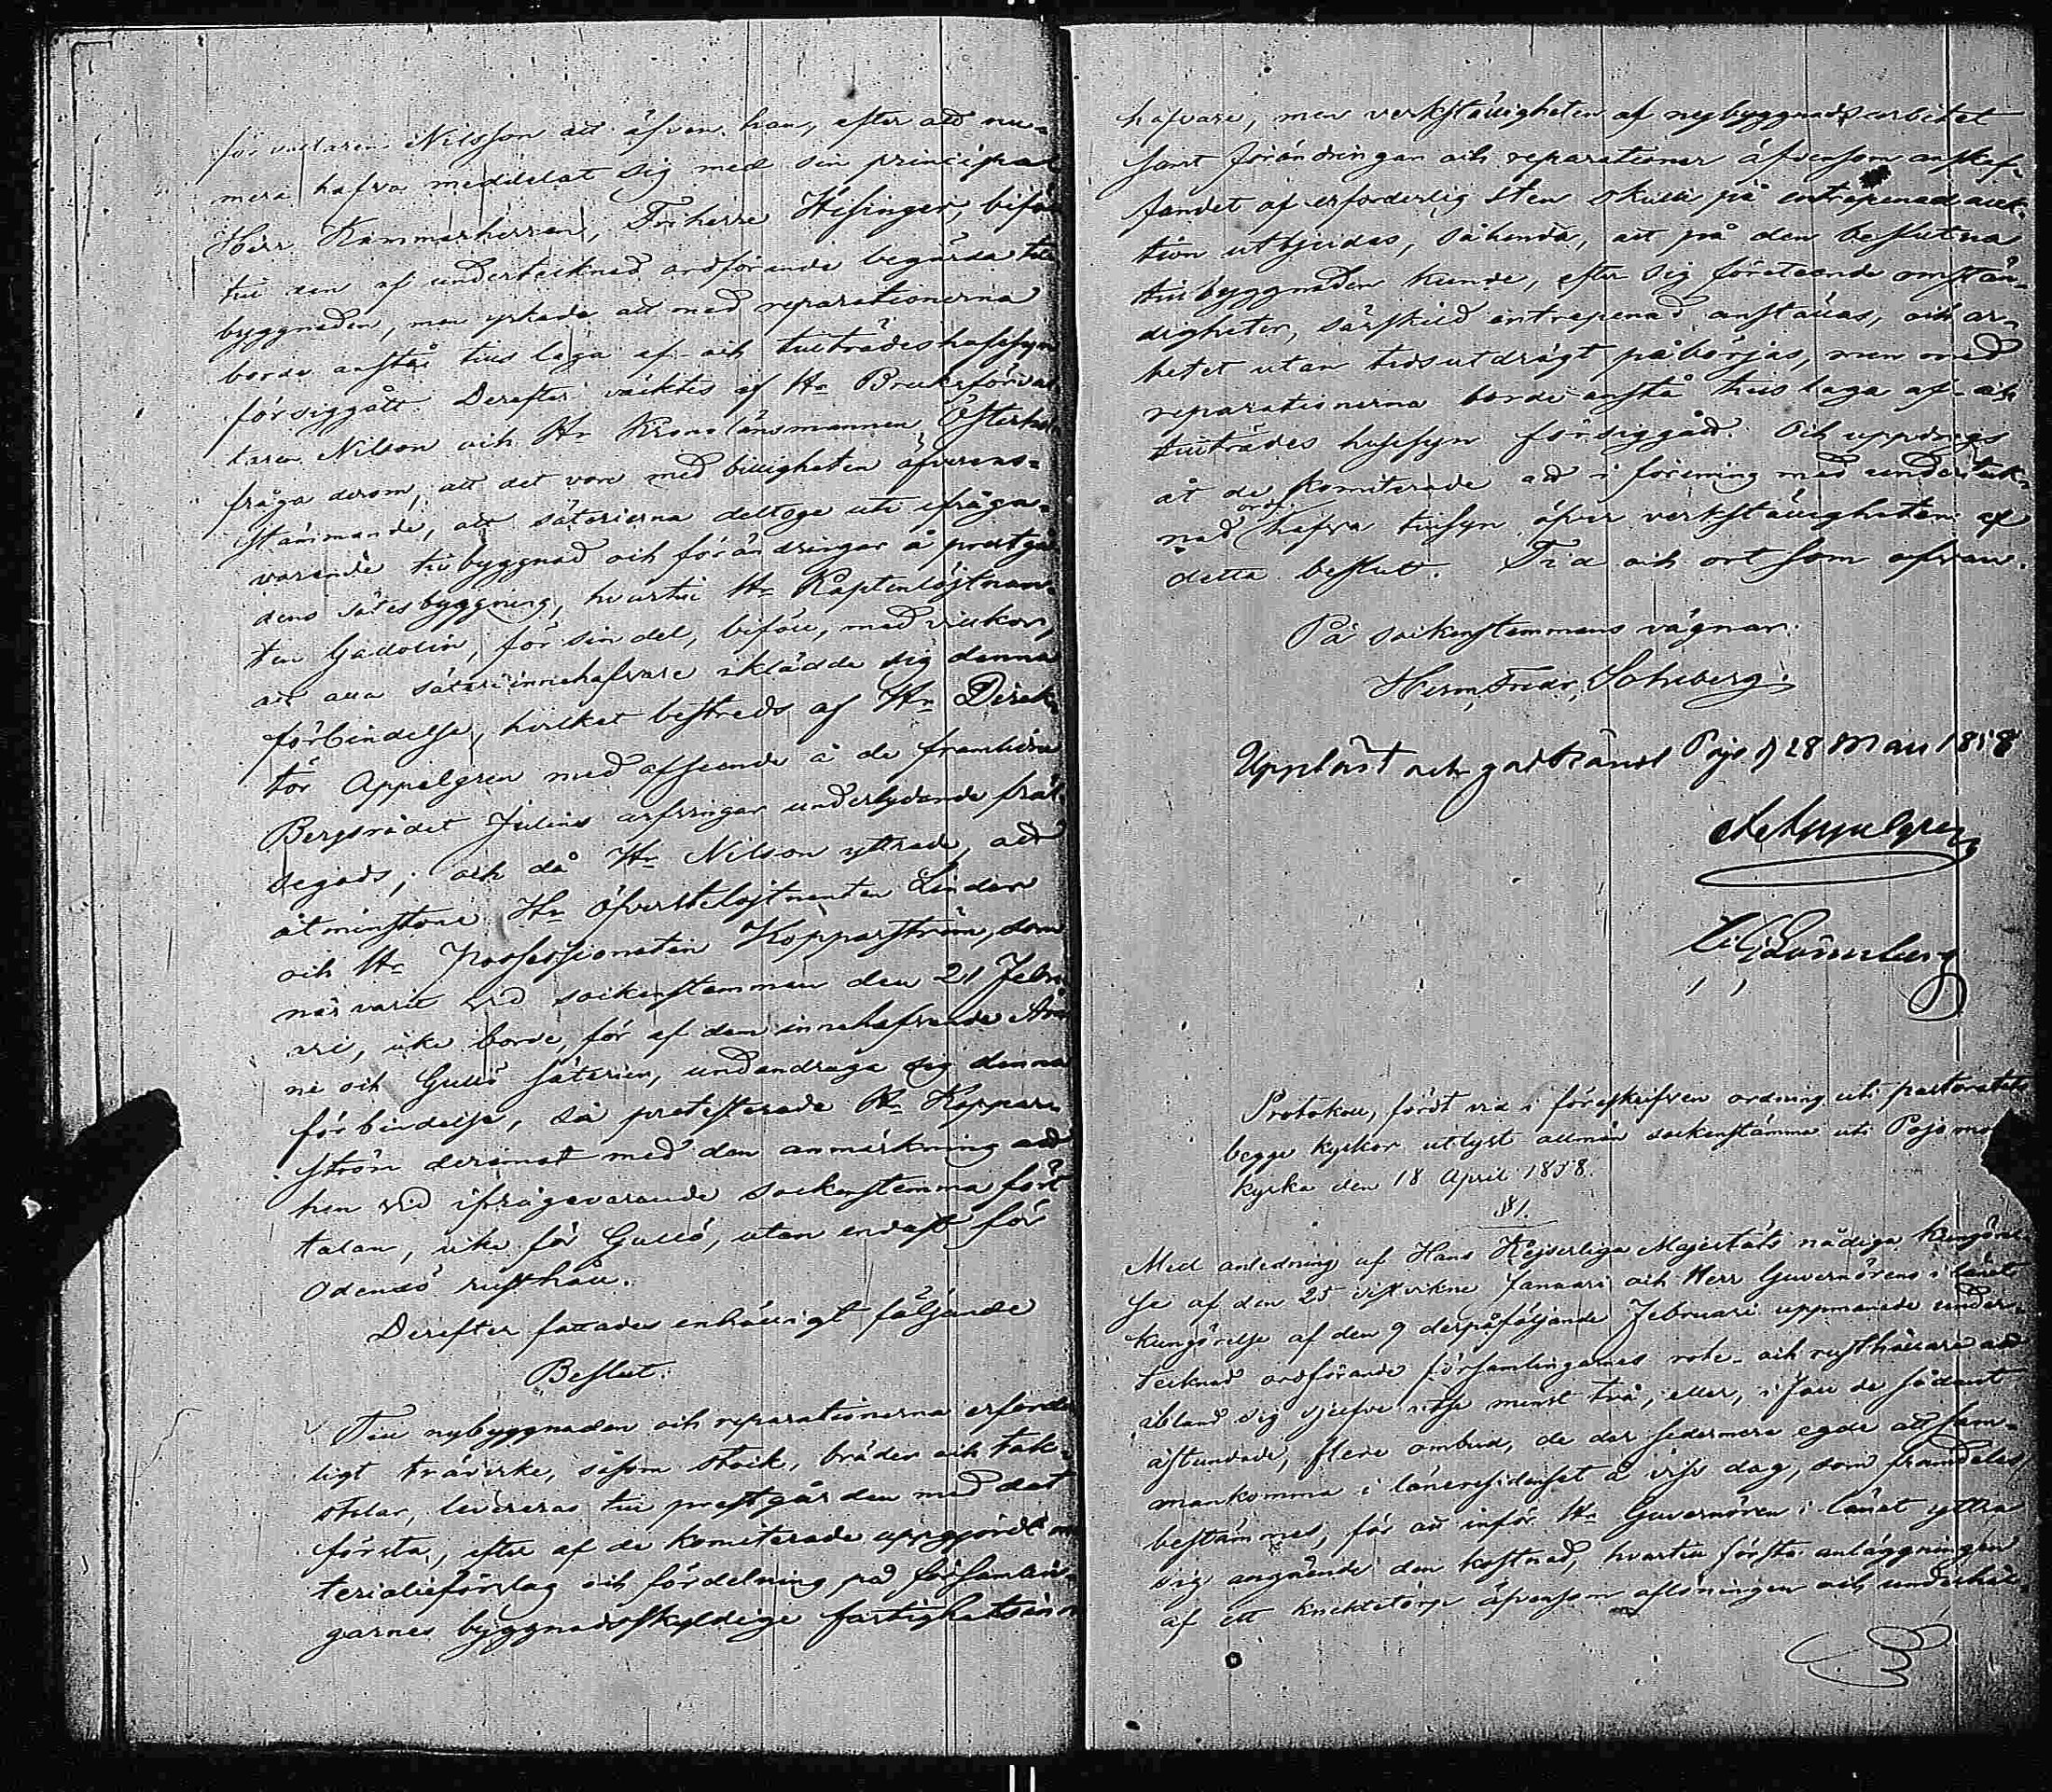 förvaltaren Nilsson att äfven han, efter att nu-
mera hafva meddelat sig med sin principal
Herr Kammarherren, Friherre Hisinger, biföll
till den af undertecknad ordförande begärda till-
byggnaden, men yrkade att med reparationerna
borde anstå tills laga af- och tillträdeshussyn
försiggått. Derefter väcktes af Hr Bruksförval-
taren Nilson och Hr Kronolänsmannen Österholm
fråga derom, att det vore med billigheten öfverens-
stämmande, att säterierna deltoge uti ifråga-
varande tillbyggnad och förändringar å prestgår-
dens sätesbyggning, hvartill Hr Kaptenlöjtnan-
ten Gadolin, för sin del, biföll, med vilkor,
att alla säteriinnehafvare iklädde sig denna
förbindelse, hvilket bestreds af Hr Direk-
tör Appelgren med afseende å de framlidne
Bergsrådet Julins arfvingar underlydande fräl-
segods; och då Hr Nilson yttrade, att
åtminstone Hr Öfverstelöjtnanten Linder
och Hr Possessionaten Kopparström, som
närvarit vid sockenstämman den 21 Febru-
ari, icke borde, för af dem innehafvande
ne och Gullö säterier, undandraga sig denna
förbindelse, så protesterade Hr Koppar-
ström deremot med den anmärkning att
han vid ifrågavarande sockenstemma fört
talan, icke för Gullö, utan endast för
Odensö rusthåll.
Derefter fattades enhälligt följande
Beslut:
Till nybyggnaden och reparationerna erforder-
ligt trävirke, såsom stock, bräder och tak-
stolar, levereras till prestgården med det
första, efter af de komiterade uppgjordt ma-
terialieförslag och fördelning på församlin-
garnes byggnadsskyldige fastighetsinne-
hafvare, men verkställigheten af nybyggnadsarbetet
samt förändringar och reparationer äfvensom anskaf-
fandet af erforderlig sten skulle på entrepenadauk-
tion utbjudas, såhända, att på den beslutna
tillbyggnaden kunde, efter sig företeende omstän-
digheter, särskild entrepenad anställas, och ar-
betet utan tidsutdrägt påbörjas, men med
reparationerna borde anstå tills laga af- och
tillträdes hussyn försiggått. Och uppdrogs
åt de komiterade att i förening med underteck-
nad ordf. hafva tillsyn öfver verkställigheten af
detta beslut. Tid och ort som ofvan.
På sockenstemmans vägnar:
Herm. Fredr. Sohlberg.
Uppläst och godkändt Pojo d 28 Mars 1858
Appelgren
Lönnberg
Protokoll, fördt vid i föreskrifven ordning uti pastoratets
begge kyrkor utlyst allmän sockenstämma uti Pojo mo-
kyrka den 18 April 1858.
§ 1.
Med anledning af Hans Kejserliga Majestäts nådiga kungörel-
se af den 25 sistvikne Januari och Herr Guvernörens i länet
kungörelse af den 9 derpåföljande Februari uppmanade under-
tecknad ordförande församlingarnes rote- och rusthållare att
ibland sig sjelfve utse minst två, eller, i fall de sådant
åstundade, flere ombud, de der sedermera egde att sam-
mankomma i länersidenset å viss dag, som framdeles
bestämmes, för att inför Hr Guvernören i länet yttra
sig angående den kostnad, hvartill första anläggningen
af ett knektetorp äfvensom aflöningen och underhål-